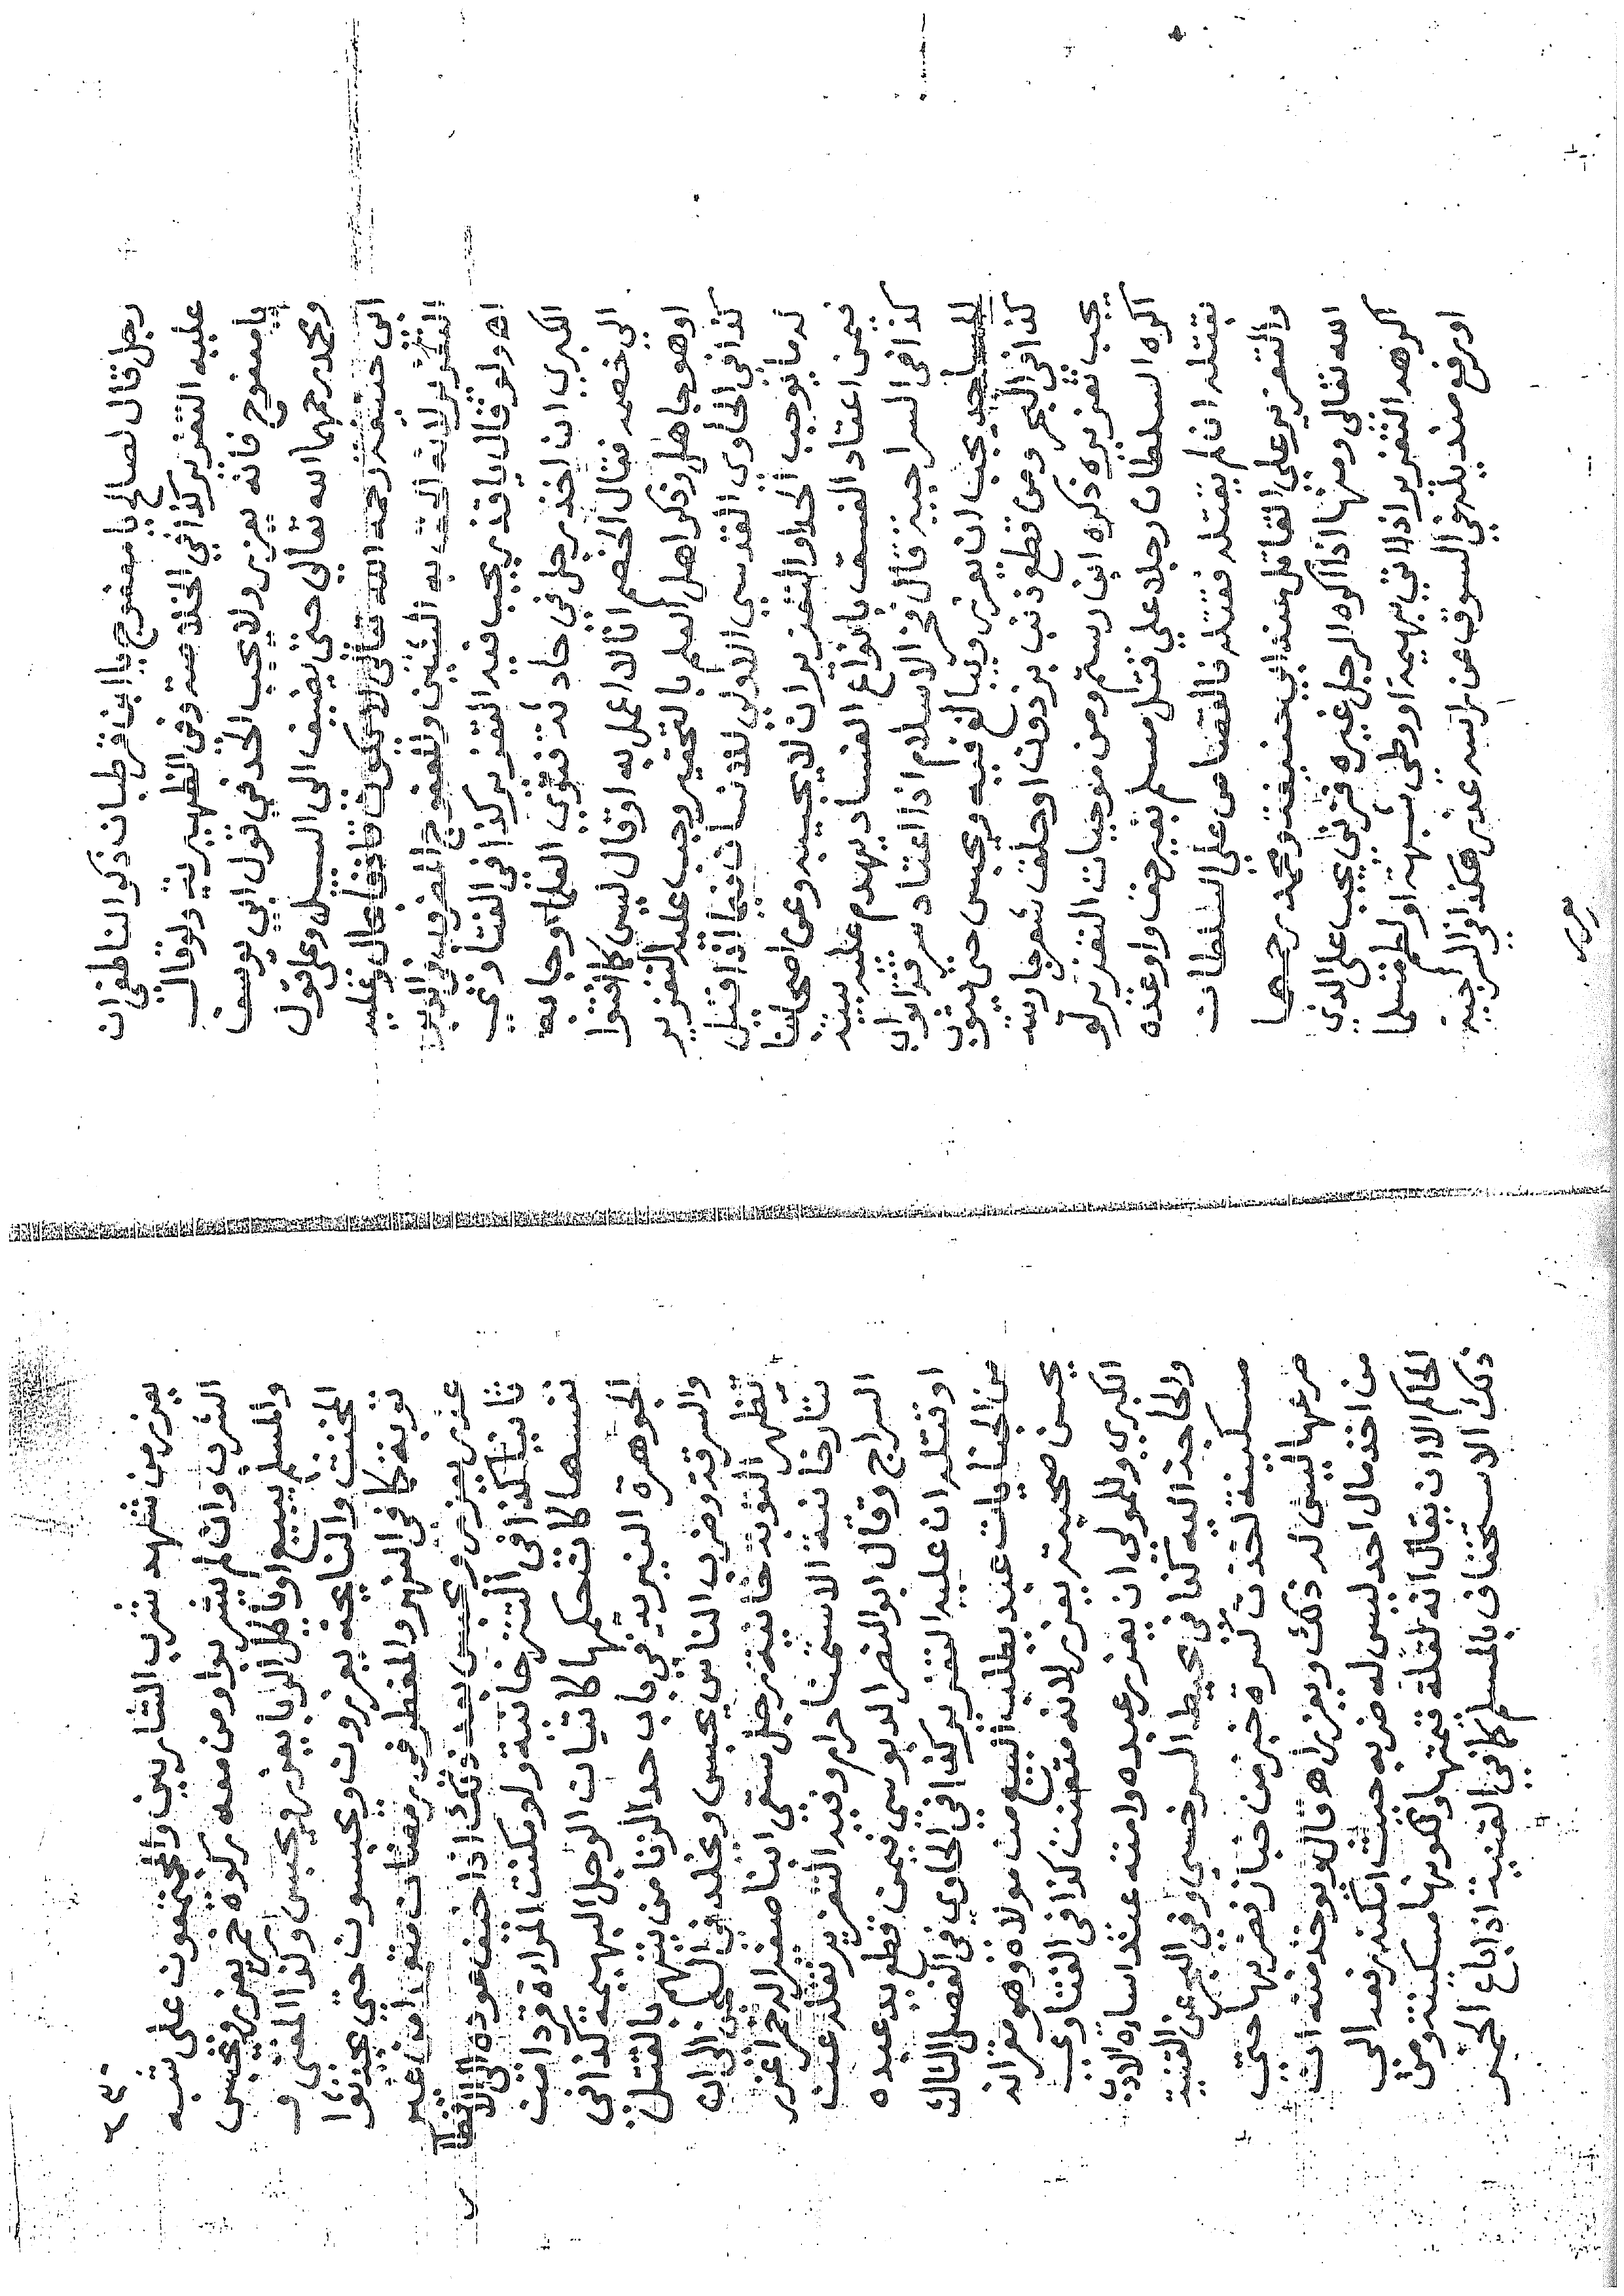 رجل قال لصالح يا معفوج يا ابن قرطبان ذكر الناطفي ان
عليه التعزير كذا في الخلاصة وفي الظهيرية ولو قال
يا معفوج فانه يعزر ولا يجب الحد في قول ابي يوسف
ومحمد رحمهما الله تعالى حتى يضيف الى السبيل وعلى قول
ابي حنيفة رحمه الله تعالى لا يكون قاذفا بحال وعليه
التعزير لانه الحق به الشين والمعفوج المضروب في الدبر
اه ولو قال يا قذر يجب فيه التعزير كذا في الفتاوى
الكبرى ان اخذ رجل في حادثة فتوى العلماء وجاء به
الى خصمه فقال الخصم انا لا اعمل به او قال ليس كما افتوا
او هو جاهل وذكر اهل العلم بالتحقير وجب عليه التعزير
كذا في الحاوى القدسي الاولى للانسان فيما اذا قيل
له ما يوجب الحد او التعزير ان لا يجيبه وعن اصحابنا
فيمن اعتاد الفسق بانواع الفساد يهدم عليه بيته
كذا في السراجية قال فخر الاسلام اذا اعتاد سرقة ابواب
المساجد يجب ان يعزر ويبالغ فيه ويحبس حتى يتوب
كذا في البحر ومن قطع ذنب برذون او حلق شعر جارية
يجب تعزيره ذكره ابن رستم ومن موجبات التعزير لو
اكره السلطان رجلا على قتل مسلم بغير حق واوعده
بقتله ان لم يقتله فقتله فالقصاص على السلطان
والتعزير على القاتل عند ابي حنيفة ومحمد رحمهما
الله تعالى ومنها اذا اكره الرجل غيره فزنى يجب على الذي
اكرهه التعزير اذا اتى بهيمة او وطى بشبهة او لطم مسلما
او رفع منديله في السوق عن راسه عزر هكذا في السراجية
يعزر
٢٣٠
يعزر من شهد شرب الشاربين والمجتمعون على شبه
الشرب وان لم يشربوا ومن معه ركوة خمر يعزر ويحبس
والمسلم يبيع او ياكل الربا يعزر ويحبس ولذا المغني و
المخنث والنايحة يعزرون ويحبسون حتى يحدثوا
توبة كما في النهر والمفطر في رمضان متعمدا من غير
عذر يعزر ويحبس بعد ذلك اذا خيف عوده الى الافطار
ثانيا كذا في التتارخانية ولو مكنت المراءة قردا من
نفسها كان حكمها كاتيان الرجل البهيمة كذا في
الجوهرة النيرية في باب حد الزنا من يتهم بالقتل
والسرقة وضرب الناس يحبس ويخلد في السجن الى ان
تظهر التوبة خانية رجل سقى ابنا صغيرا له خمرا عزر
تتارخانية الاستمنا حرام وفيه التعزير نقله عن
السراج وقال ابو النصر الدبوسي فيمن قطع يد عبده
او قتله ان عليه التعزير كذا في الحاوى في الفصل الثالث
من الجنايات عبد يطلب البيع من مولاه وهو مقر انه
يحسن صحبته يعزر لانه متعنت كذا في الفتاوى
الكبرى وللمولى ان يعزر عبده وامته عند اساءة الادب
والحاجة اليه كذا في محيط السرخسي وفي البحر عن القنية
مسكينة اخذت كسرة خبز من خباز فضربها حتى
صرعها ليس له ذلك ويعزر اه قال يوخذ منه ان
من اخذ مال احد ليس له ضربه حيث امكنه رفعه الى
الحاكم الا ان يقال انه لقلة قيمتها ولكونها مسكينة ومن
ذلك الاستخفاف بالمسلم كما في القنية اذا باع الخمر